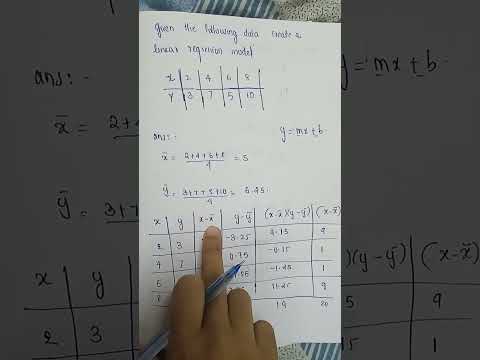 Given the following data create a
linear regression model
x 2 4 6 8
y 3 7 5 10
ans:-
y = mx + b
x̄ = 2+4+6+8 / 4 = 5
ȳ = 3+7+5+10 / 4 = 6.25
x y x-x̄ y-ȳ (x-x̄)(y-ȳ) (x-x̄)
2 3 -3.25 9.75 9
4 7 0.75 -0.75 1
6 -1.25 1
8 11.25 9
19 20